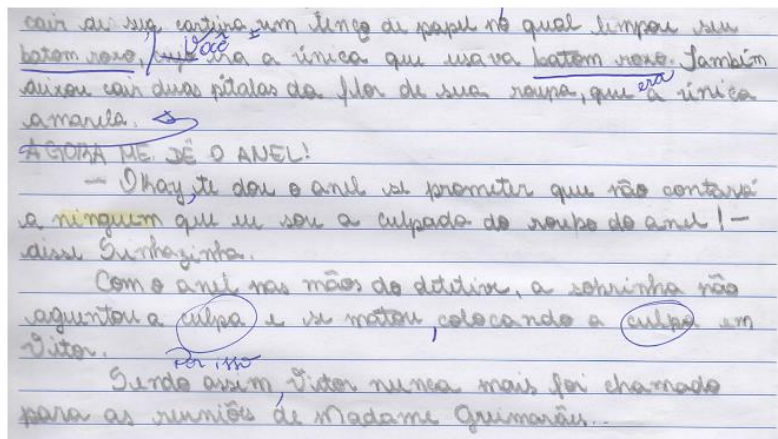 cair de sua carteira um lenço de papel no qual limpou seu
batom roxo, Você era a única que usava batom roxo. Também
deixou cair duas pétalas da flor de sua roupa, que era a única
amarela.
AGORA ME DÊ O ANEL!
— Okay, te dou o anel se prometer que não contará
a ninguem que eu sou a culpada do roupo do anel! –
disse Sinhazinha.
Com o anel nas mãos do detetive, a sobrinha não
aguentou a culpa e se matou, colocando a culpa em
Vitor.
Por isso
Sendo assim, Victor nunca mais foi chamado
para as reuniões de Madame Guimarães...